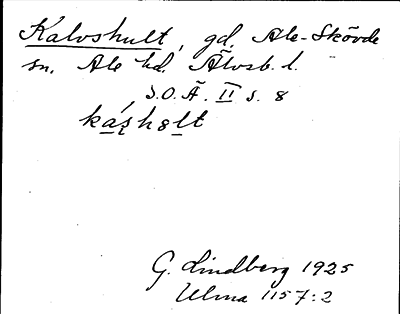 Kalvshult, gd. Ale-Skövde
sn. Ale hd. Älvsb. l.
S.O.Ä. II s. 8
G. Lindberg 1925
Ulma 1157:2